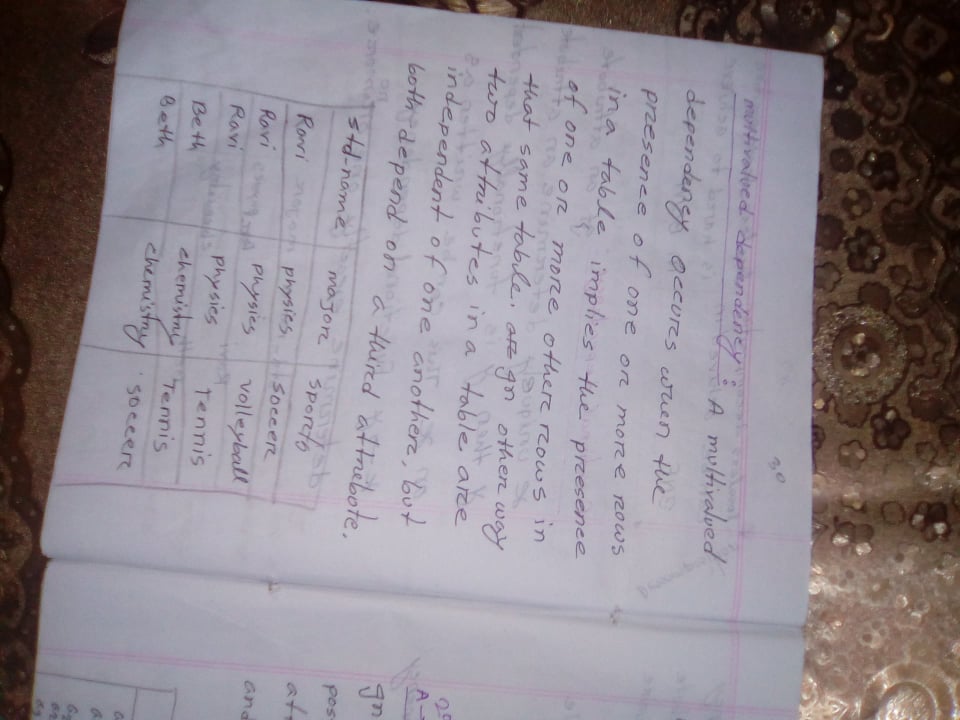 30
multivalued dependency : A multivalued
dependency occurs when the
presence of one or more rows
in a table implies the presence
of one or more other rows in
that same table. or gn other way
two attributes in a table are
independent of one another, but
both depend on a third attrebote.
std-name major sports
Ravi physics soccer
Ravi physics volleyball
Ravi physics Tennis
Beth chemistry Tennis
Beth chemistry soccer
A
gn
pos
att
and